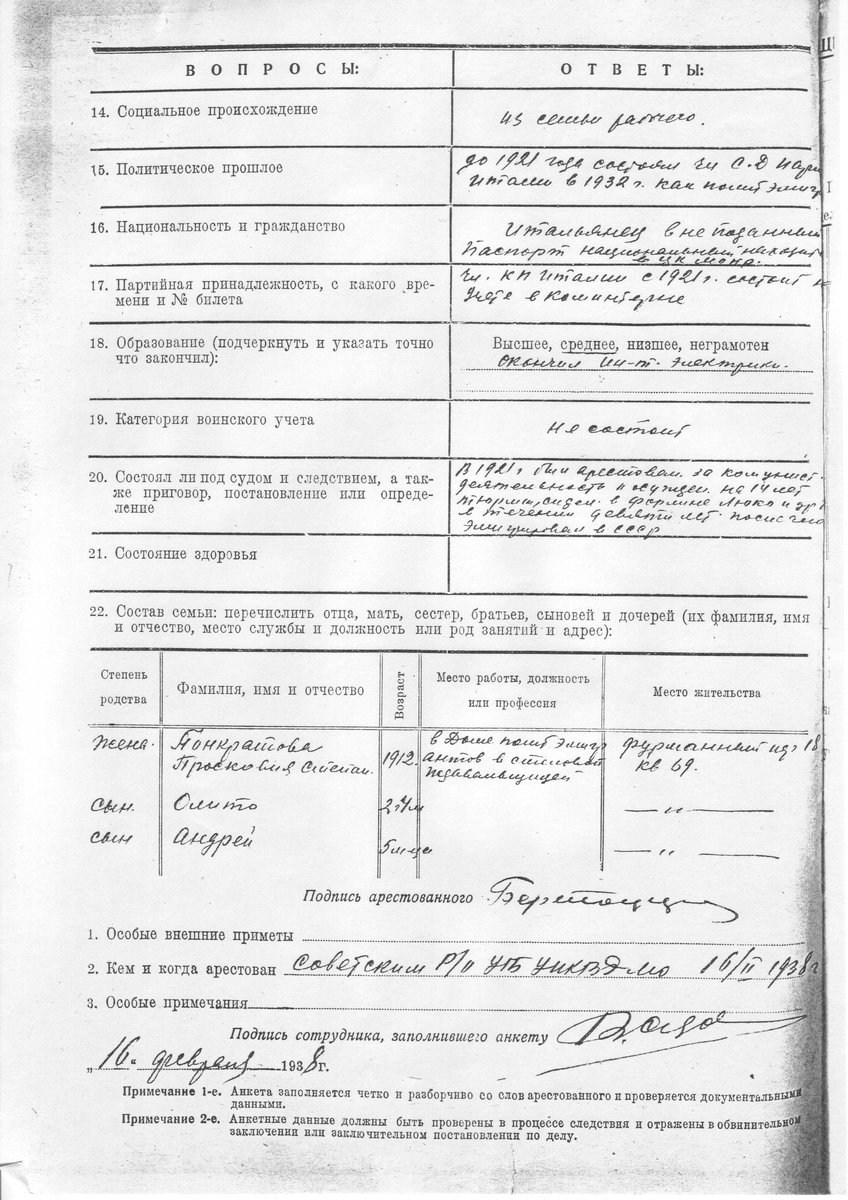 ВОПРОСЫ: ОТВЕТЫ:
14. Социальное происхождение из семьи рабочего.
15. Политическое прошлое до 1921 года состоял чл С.Д парт
Италии в 1932 г. как полит эмигр
16. Национальность и гражданство Итальянец в не поданный
паспорт национальный находит
в ЦК Мопр.
17. Партийная принадлежность, с какого вре-
мени и № билета
чл. КП Италии с 1921 г. состоит н
учете в Коминтерне
18. Образование (подчеркнуть и указать точно
что закончил):
Высшее, среднее, низшее, неграмотен
окончил ин-т. электрики.
19. Категория воинского учета не состоит
20. Состоял ли под судом и следствием, а так-
же приговор, постановление или опреде-
ление
В 1921 г был арестован. за комунист.
деятельность и осужден. на 14 лет
тюрьмы, сидел. в
в течении девяти лет после чего
Эмигрировал в СССР
21. Состояние здоровья
22. Состав семьи: перечислить отца, мать, сестер, братьев, сыновей и дочерей (их фамилия, имя
и отчество, место службы и должность или род занятий и адрес):
Степень
родства
Фамилия, имя и отчество
Возраст
Место работы, должность
или профессия
Место жительства
жена. Понкратова
Просковия Степан. 1912.
в Доме полит эмигр
антов в столовой
подавальщицей
фурманный пер 18
кв 69.
сын. Олито 2 г 4 м — „ —
сын Андрей 5 м-ца — „ —
Подпись арестованного
1. Особые внешние приметы
2. Кем и когда арестован Советским Р/о УГБ УНКВД МО 16/II 1938 г
3. Особые примечания
Подпись сотрудника, заполнившего анкету
„16" февраля 1938 г.
Примечание 1-е. Анкета заполняется четко и разборчиво со слов арестованного и проверяется документальными
данными.
Примечание 2-е. Анкетные данные должны быть проверены в процессе следствия и отражены в обвинительном
заключении или заключительном постановлении по делу.